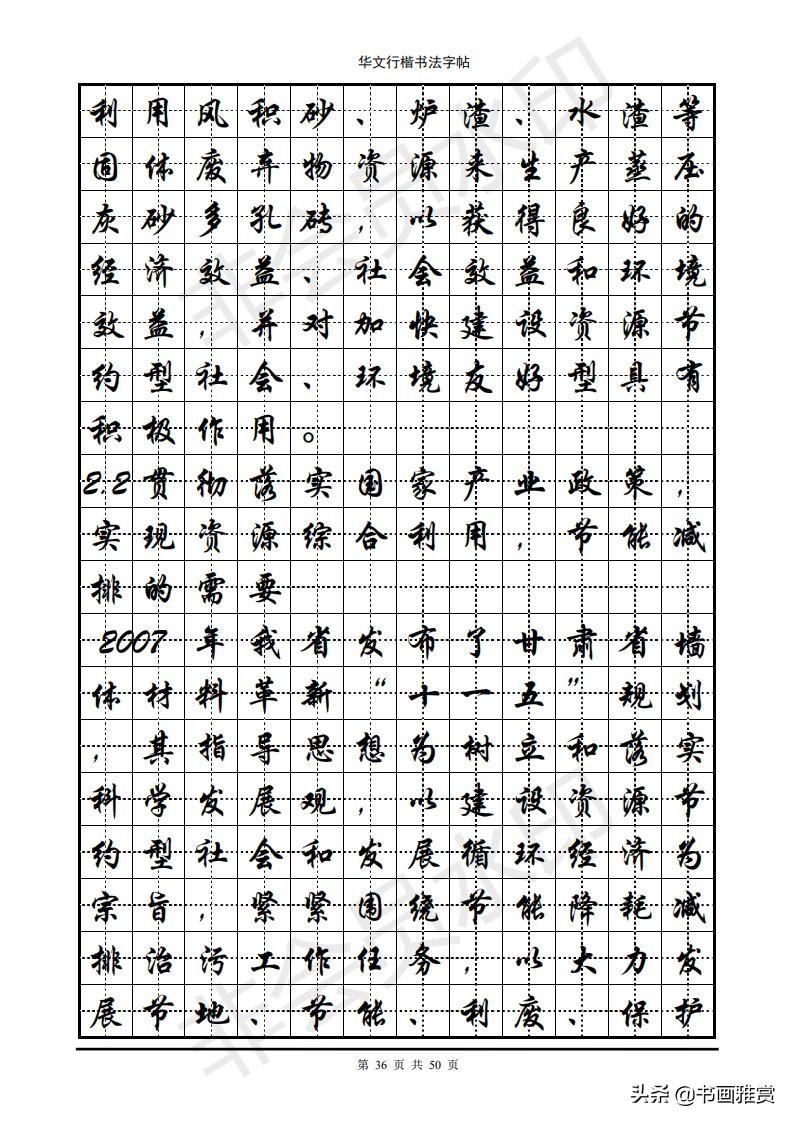 华文行楷书法字帖
利用风积砂、炉渣、水渣等
固体废弃物资源来生产蒸压
灰砂多孔砖，以获得良好的
经济效益、社会效益和环境
效益，并对加快建设资源节
约型社会、环境友好型具有
积极作用。
2.2贯彻落实国家产业政策，
实现资源综合利用，节能减
排的需要
2007年我省发布了甘肃省墙
体材料革新“十一五”规划
，其指导思想为树立和落实
科学发展观，以建设资源节
约型社会和发展循环经济为
宗旨，紧紧围绕节能降耗减
排治污工作任务，以大力发
展节地、节能、利废、保护
第 36 页 共 50 页
非会员水印
非会员水印
头条 @书画雅赏